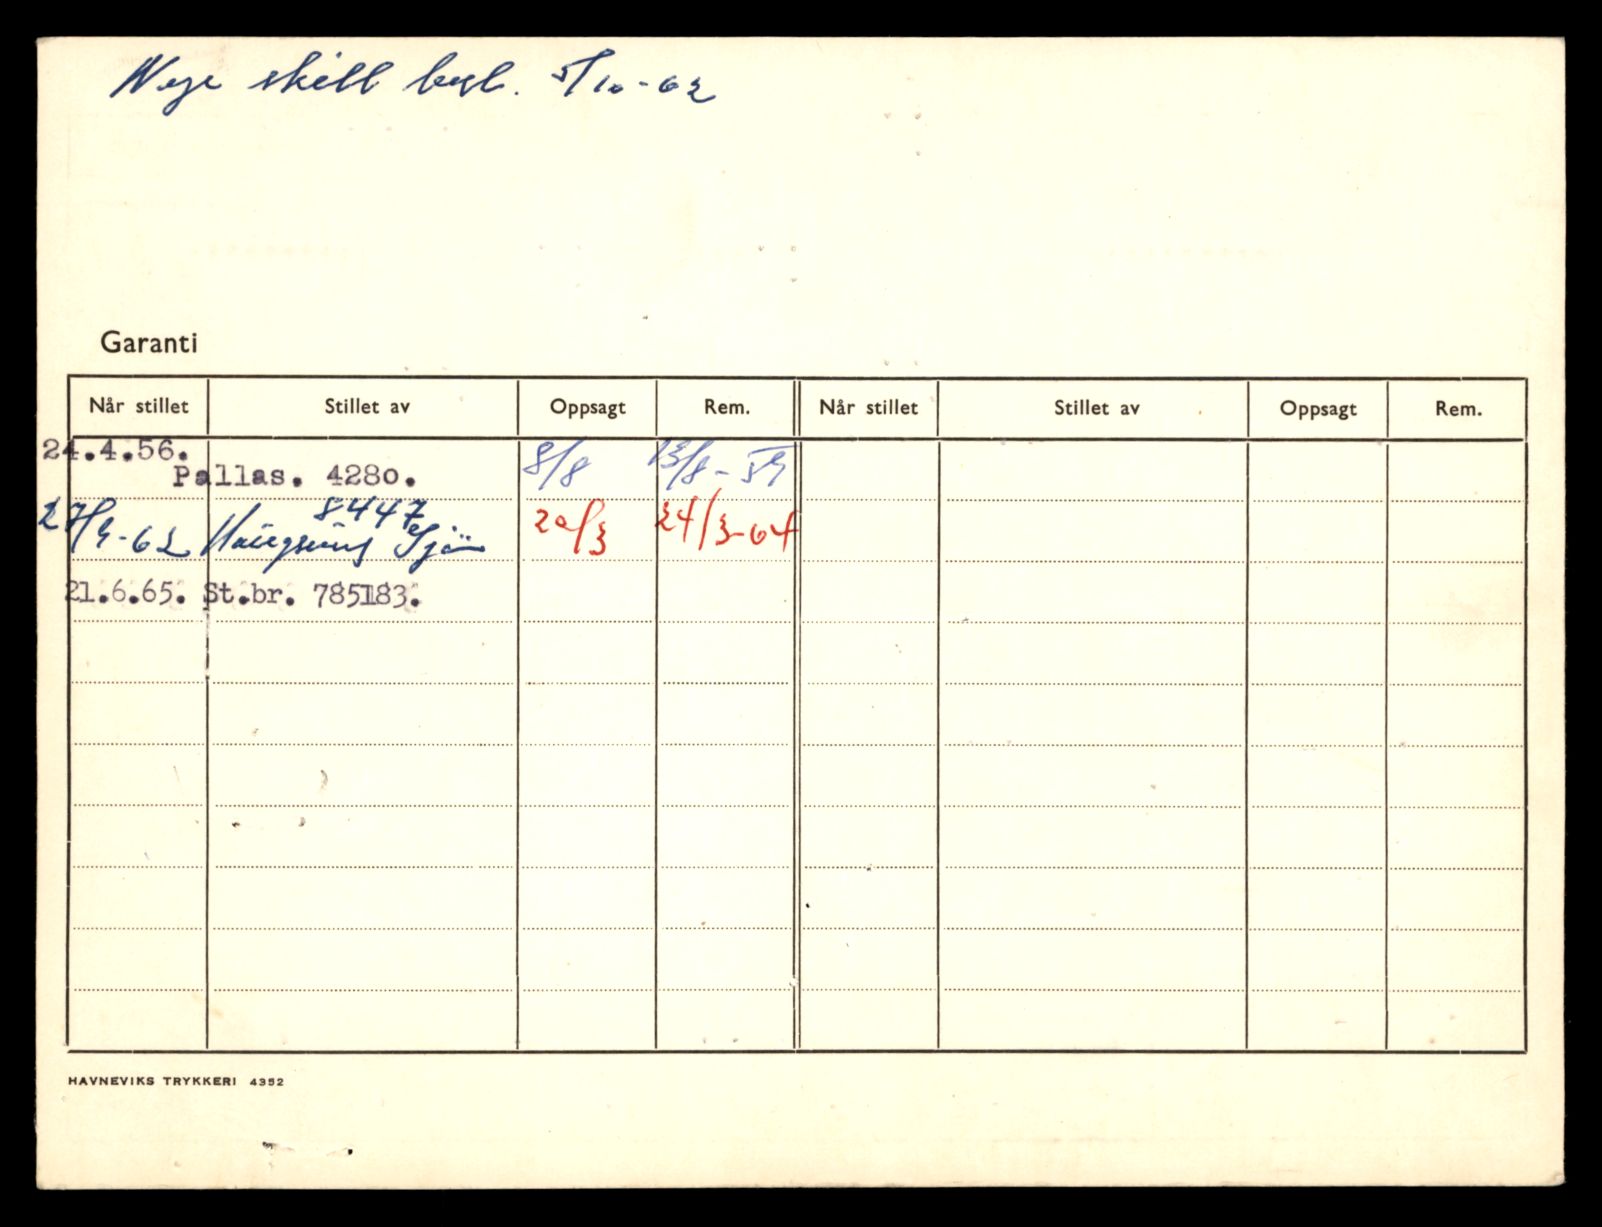 Nye skilt besl. 5/10-62
Garanti
Når stillet Stillet av Oppsagt Rem. Når stillet Stillet av Oppsagt Rem.
24.4.56.
Pallas. 4280. 8/8 13/8-59
8447
27/9-62 Haugesund Sjø 20/3 24/3-64
21.6.65. St.br. 785183.
HAVNEVIKS TRYKKERI 4352